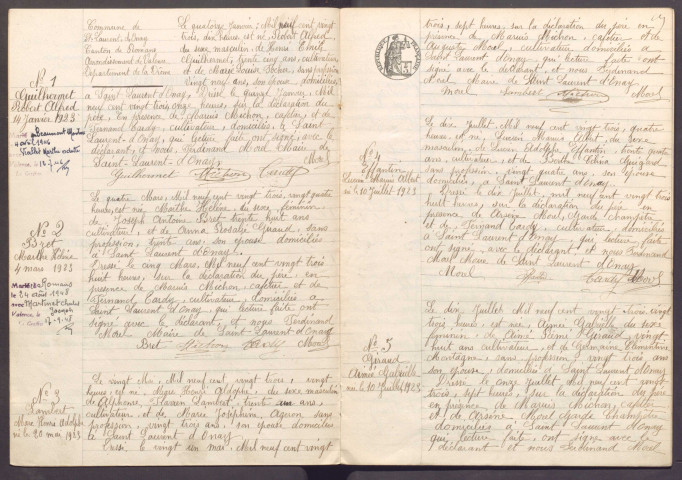 Commune de
St Laurent d'Onay
Canton de Romans
Arrondissement de Valence
Département de la Drôme
N° 1
Guilhermet
Robert Alfred
14 Janvier 1923
Le quatorze Janvier, Mil neuf cent vingt
trois, dix heures est né, Robert Alfred
du sexe masculin, de Henri Emile
Guilhermet, trente cinq ans, cultivateur
et de Marie Louise
vingt ans, son épouse, domiciliés
à Saint Laurent d'Onay, Dressé le quinze Janvier, Mil
neuf cent vingt trois onze heures, sur la déclaration du
père, En présence de Marius Michon, cafetier, et de
Fernand Tardy, cultivateur, domiciliés, à Saint
Laurent d'Onay, qui lecture faite, ont signé avec le
déclarant, et nous, Ferdinand Morel Maire de
Saint-Laurent-d'Onay.
Guilhermet Michon Tardy Morel
N° 2
Bret
Marthe Hélène
4 mars 1923
Mariée à Romans
le 24 août 1948
avec Martinet Charles
Joseph
Le quatre Mars, Mil neuf cent vingt trois, vingt quatre
heures, est née, Marthe Hélène, du sexe féminin,
de Joseph Antoine Bret, trente huit ans
cultivateur, et de Anna Rosalie Giraud, sans
profession, trente ans, son épouse domiciliés
à Saint Laurent d'Onay.
Dressé, le cinq Mars, Mil neuf cent vingt trois
huit heures, sur la déclaration du père, en pré-
sence de Marius Michon, cafetier, et de
Fernand Tardy, cultivateur, domiciliés à
Saint Laurent d'Onay, qui lecture faite ont
signé avec le déclarant, et nous Ferdinand
Morel Maire de Saint Laurent d'Onay
Bret Michon Tardy Morel
N° 3
Lambert
Marc Henri Adolphe
né le 20 mai 1923
Le vingt Mai, Mil neuf cent vingt trois, vingt
heures, est né, Marc Henri Adolphe, du sexe masculin
de Alphonse Flavien Lambert, trente ans,
cultivateur, et de Marie Joséphine Ageron sans
profession, vingt trois ans, son épouse domiciliés
à Saint Laurent d'Onay.
Dressé, le vingt un mai, Mil neuf cent vingt
trois, sept heures, sur la déclaration du père en
présence de Marius Michon, cafetier et de
Auguste Morel, cultivateur domiciliés à
Saint Laurent d'Onay, qui lecture faite, ont
signé avec le déclarant, et nous Ferdinand
Morel, Maire de Saint Laurent d'Onay.
Morel Lambert Michon Morel
N° 4
Effantin
Lucien Marius Albert
né le 10 Juillet 1923
Le dix Juillet, Mil neuf cent vingt trois, quatre
heures, est né, Lucien Marius Albert, du sexe
masculin, de Lucien Adolphe Effantin, trente quatre
ans, cultivateur, et de Berthe
sans profession, vingt quatre ans, son épouse
domiciliés, à Saint Laurent d'Onay.
Dressé le dix Juillet, Mil neuf cent vingt trois
huit heures, sur la déclaration du père en
présence de Arsène Morel, Garde champêtre
et de Fernand Tardy, cultivateur, domiciliés
à Saint Laurent d'Onay, qui lecture faite
ont signé, avec le déclarant et nous Ferdinand
Morel Maire de Saint Laurent d'Onay.
Morel Effantin Tardy Morel
N° 5
Giraud
Aimée Gabrielle
née le 10 Juillet 1923
Le dix, Juillet, Mil neuf cent vingt trois, vingt
trois heures, est née, Aimée Gabrielle, du sexe
féminin, de Aimé Giraud, vingt
huit ans cultivateur, et de Germaine Clémentine
Montagne, sans profession, vingt trois ans
son épouse, domiciliés à Saint Laurent d'Onay.
Dressé le onze Juillet, Mil neuf cent vingt
trois, sept heures, sur la déclaration du père
en présence de Marius Michon, cafetier
et de Arsène Morel, Garde champêtre
domiciliés à Saint Laurent d'Onay
qui lecture faite, ont signé avec le
déclarant et nous Ferdinand Morel